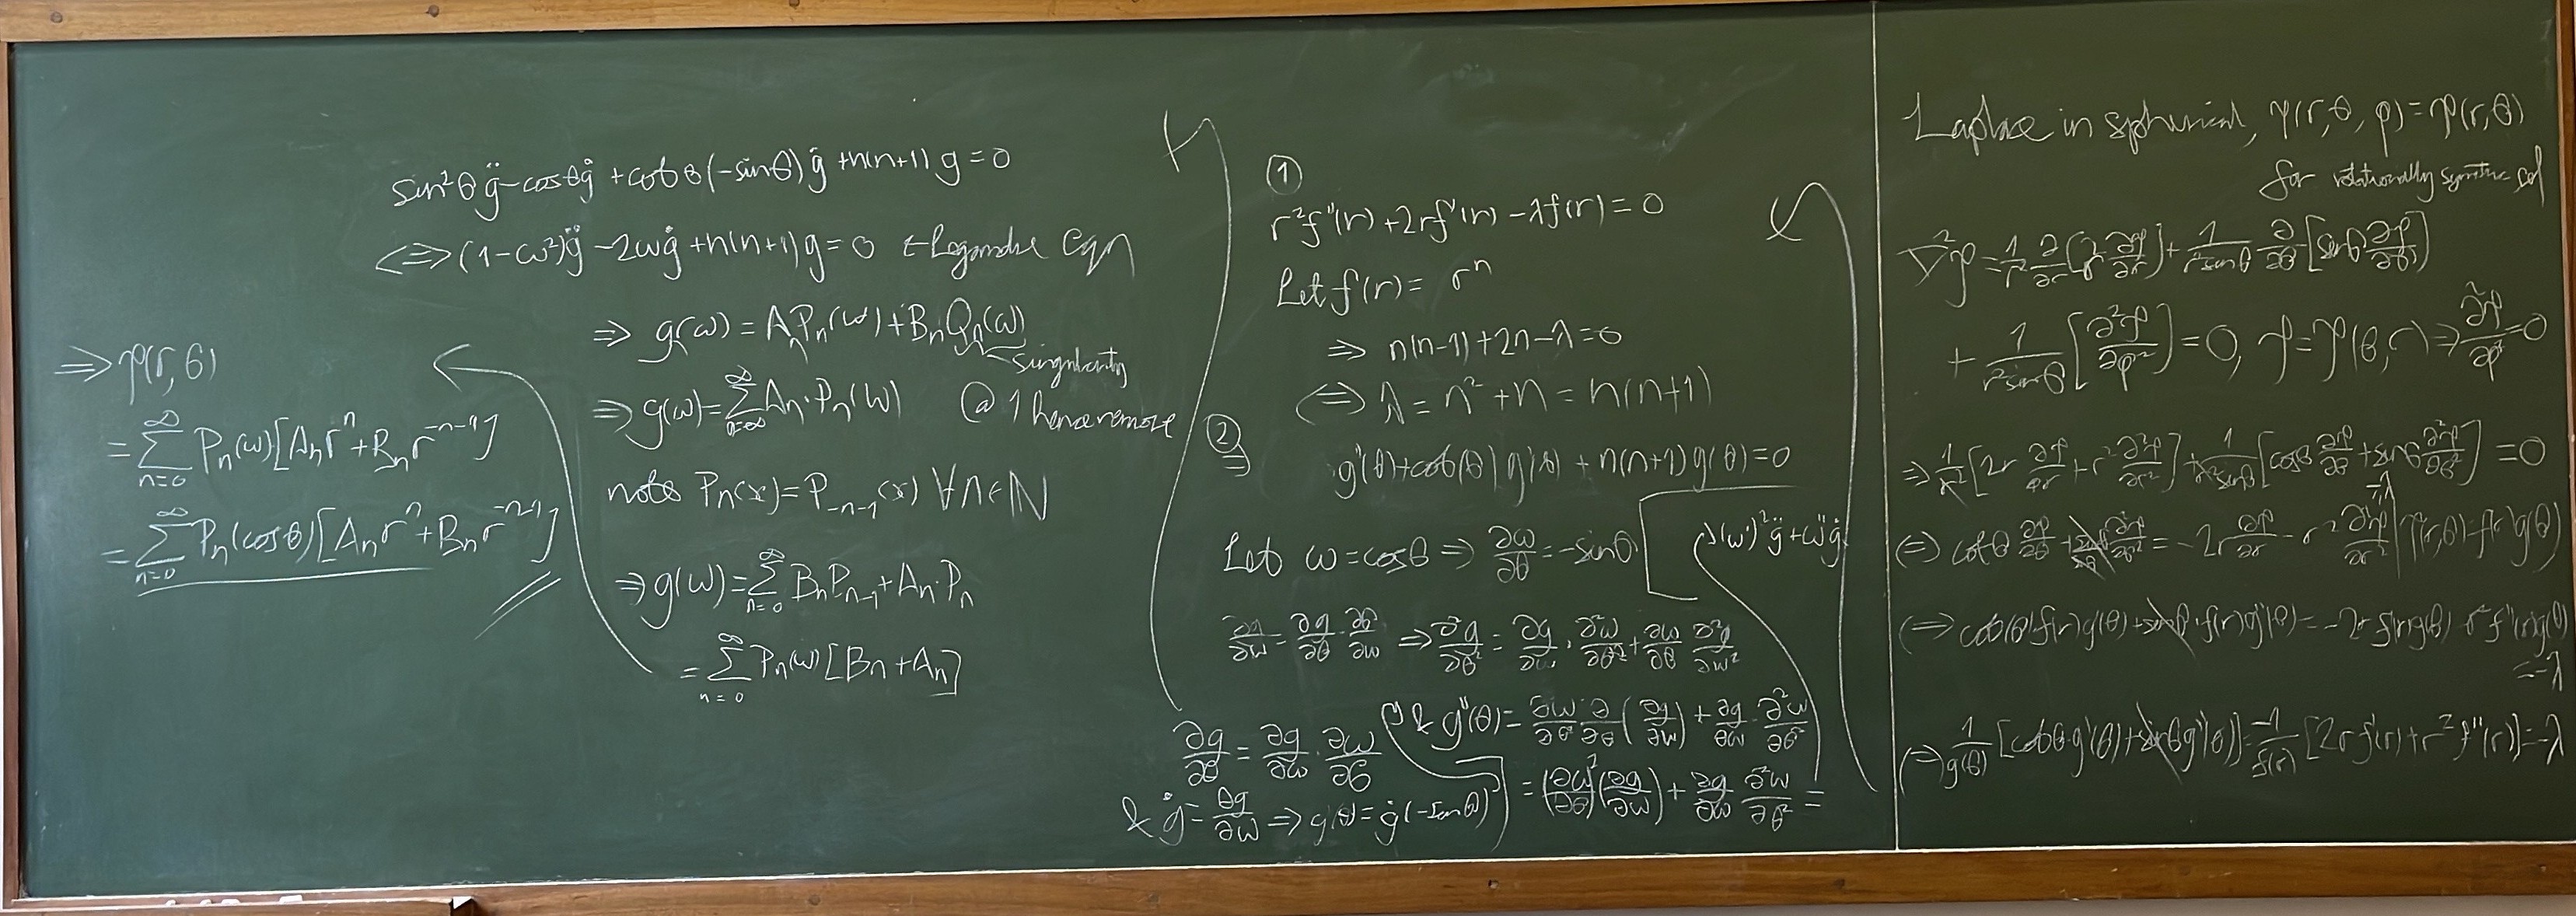 Laplace in spherical, ψ(r,θ,φ)=ψ(r,θ)
for rotationally symmetric sol
∇²ψ = 1/r² ∂/∂r (r² ∂ψ/∂r) + 1/(r² sinθ) ∂/∂θ [sinθ ∂ψ/∂θ]
+ 1/(r² sinθ) [∂²ψ/∂φ²] = 0, ψ=ψ(θ,r) ⇒ ∂²ψ/∂φ² = 0
⇒ 1/r² [2r ∂ψ/∂r + r² ∂²ψ/∂r²] + 1/(r² sinθ) [cosθ ∂ψ/∂θ + sinθ ∂²ψ/∂θ²] = 0
⇔ cotθ ∂ψ/∂θ + ∂²ψ/∂θ² = -2r ∂ψ/∂r - r² ∂²ψ/∂r² | ψ(r,θ)=f(r)g(θ)
-λ
⇔ cot(θ) f(r) g'(θ) + f(r) g''(θ) = -2r f'(r) g(θ) - r² f''(r) g(θ)
= -λ
⇔ 1/g(θ) [cotθ·g'(θ) + g''(θ)] = -1/f(r) [2r f'(r) + r² f''(r)] = -λ
①
r² f''(r) + 2r f'(r) - λ f(r) = 0
Let f(r) = rⁿ
⇒ n(n-1) + 2n - λ = 0
⇔ λ = n² + n = n(n+1)
②
⇒ g''(θ) + cot(θ) g'(θ) + n(n+1) g(θ) = 0
Let ω = cosθ ⇒ ∂ω/∂θ = -sinθ
∂g/∂ω = ∂g/∂θ · ∂θ/∂ω ⇒ ∂²g/∂θ² = ∂g/∂ω · ∂²ω/∂θ² + ∂ω/∂θ ∂²g/∂ω²
∂g/∂θ = ∂g/∂ω · ∂ω/∂θ
& ġ = ∂g/∂ω ⇒ g'(θ) = ġ(-sinθ)
& g''(θ) = ∂ω/∂θ · ∂/∂θ (∂g/∂ω) + ∂g/∂ω · ∂²ω/∂θ²
= (∂ω/∂θ)² (∂g/∂ω) + ∂g/∂ω ∂²ω/∂θ² =
(ω')² g̈ + ω'' ġ
sin²θ g̈ - cosθ ġ + cotθ (-sinθ) ġ + n(n+1) g = 0
⇔ (1-ω²) g̈ - 2ω ġ + n(n+1) g = 0 ← Legendre Eqn
⇒ g(ω) = AₙPₙ(ω) + BₙQₙ(ω)
← singularity
@ 1 hence remove
⇒ g(ω) = Σ_{n=-∞}^{∞} Aₙ·Pₙ(ω)
note Pₙ(x) = P₋ₙ₋₁(x) ∀n∈ℕ
⇒ g(ω) = Σ_{n=0}^{∞} BₙP₋ₙ₋₁ + Aₙ·Pₙ
= Σ_{n=0}^{∞} Pₙ(ω) [Bₙ + Aₙ]
⇒ ψ(r,θ)
= Σ_{n=0}^{∞} Pₙ(ω) [Aₙ rⁿ + Bₙ r⁻ⁿ⁻¹]
= Σ_{n=0}^{∞} Pₙ(cosθ) [Aₙ rⁿ + Bₙ r⁻ⁿ⁻¹]